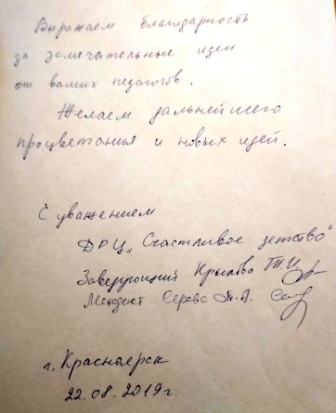 Выражаем благодарность
за замечательные идеи
от ваших педагогов.
Желаем дальнейшего
процветания и новых идей.
С уважением
ДРЦ „Счастливое детство"
Заведующий Крылова Т.И.
Методист Серова
г. Красноярск
22.08.2019г.